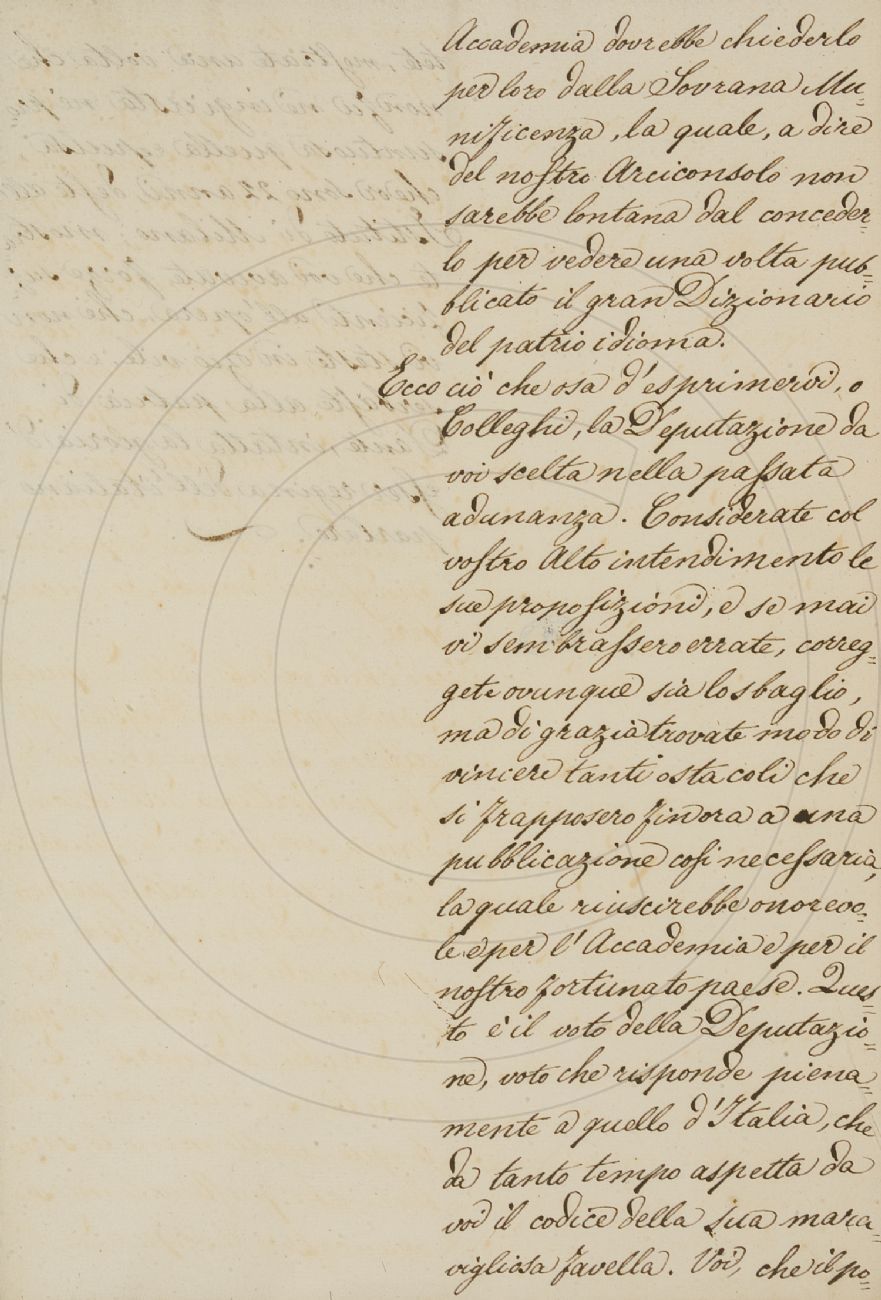 Accademia dovrebbe chiederlo
per loro dalla Sovrana Mu-
nificenza, la quale, a dire
del nostro Arciconsolo non
sarebbe lontana dal conceder-
lo per vedere una volta pub=
blicato il gran Dizionario
del patrio idioma.
Ecco ciò che osa d'esprimervi, o
Colleghi, la Deputazione da
voi scelta nella passata
adunanza. Considerate col
vostro Alto intendimento le
sue proposizioni, e se mai
vi sembrassero errate, correg=
gete ovunque sia lo sbaglio,
ma di grazia trovate modo di
vincere tanti ostacoli che
si frapposero finora a una
pubblicazione così necessaria,
la quale riuscirebbe onorevo=
le e per l'Accademia e per il
nostro fortunato paese. Ques=
to è il voto della Deputazio=
ne, voto che risponde piena=
mente a quello d'Italia, che
da tanto tempo aspetta da
voi il codice della sua mara=
vigliosa favella. Voi, che il po=